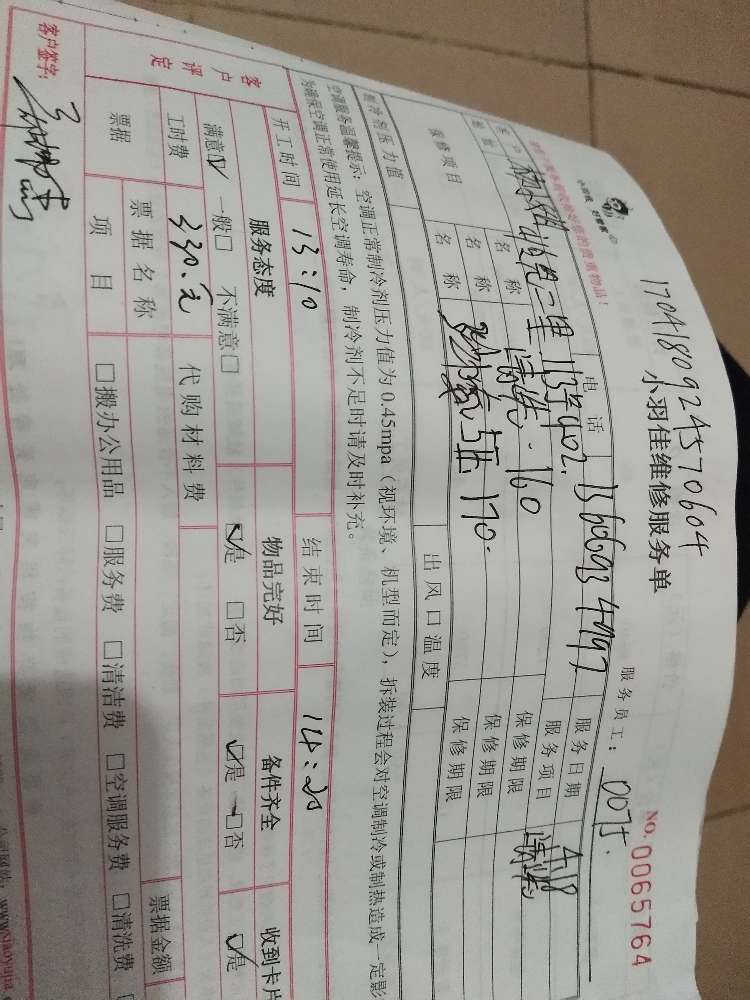 1704180924570604
小羽佳维修服务单
小羽佳 好管家
NO. 0065764
服务员工： 0075.
的贵重物品！
客户
地址
二里113号402.
电话 13606934997
服务日期 4.18
报修项目
名称 清洗. 160
服务项目 清洗
保修期限
名称
170.
保修期限
名称
保修期限
制冷剂压力值
出风口温度
空调服务温馨提示：空调正常制冷剂压力值为0.45mpa（视环境、机型而定），拆装过程会对空调制冷或制热造成一定影
为确保空调正常使用延长空调寿命，制冷剂不足时请及时补充。
开工时间 13:10
结束时间 14:20
客户评定
服务态度
物品完好
备件齐全
收到卡片
满意☑ 一般□ 不满意□
☑是 □否
☑是 □否
☑是
工时费 330.元
代购材料费
票据
票据名称
票据金额
项目
□搬办公用品 □服务费 □清洁费 □空调服务费 □清洗费
客户签字: